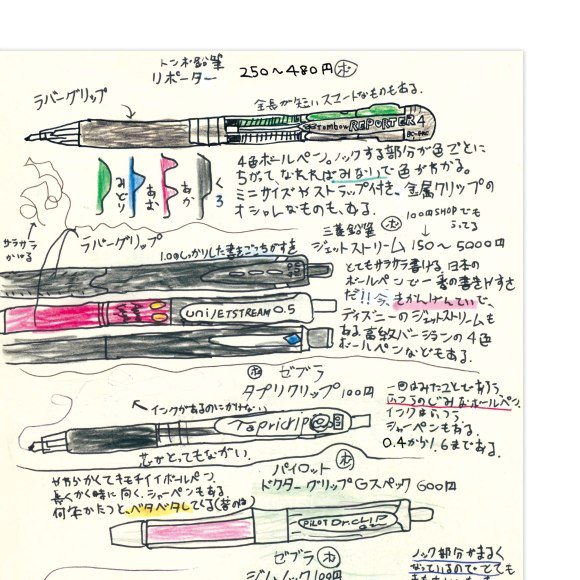 トンボ鉛筆
リポーター 250〜480円 ボ
ラバーグリップ
全長が短いスマートなものもある.
Tombow REPORTER 4
4色ボールペン。ノックする部分が色ごとに
ちがってなれればみないで色がわかる。
ミニサイズやストラップ付き、金属クリップの
オシャレなものも、ある.
みどり
あお
あか
くろ
サラサラ
かける
ラバーグリップ
三菱鉛筆 ボ
100円SHOPでも
うってる
ジェットストリーム 150〜5000円
1.0のしっかりした書きごこちがすき
とてもサラサラ書ける. 日本の
ボールペンで一番の書きやすさ
だ!! 今、きかんげんていで、
ディズニーのジェットストリームも
ある. 高級バージョンの4色
ボールペンなどもある.
uni JETSTREAM 0.5
ボ ゼブラ
タプリクリップ 100円
インクがあるのにかけない
Tapriclip
芯がとてもながい.
一回はみたことであろう
ふつうのじみなボールペン.
インクはふつう
シャーペンもある.
0.4から1.6まである.
パイロット ボ
ドクターグリップGスペック 600円
やわらかくてキモチイイボールペン.
長くかく時に向く. シャーペンもある
何年かたつと、ベタベタしてくる(昔のは)
PILOT Dr.CLIP
ゼブラ ボ
ジムノック 100円
ノック部分がまるく
なっているのでとても